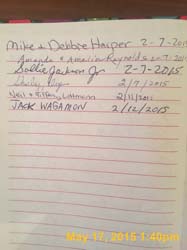 Mike & Debbie Harper 2-7-2015
Amanda & Amelia Reynolds 2-7-2015
Sallie Jackson Jr 2-7-2015
2/7/2015
Neil & Tiffany Lottmann 2/11/201
JACK WAGAMON 2/12/2015
May 17, 2015 1:40pm